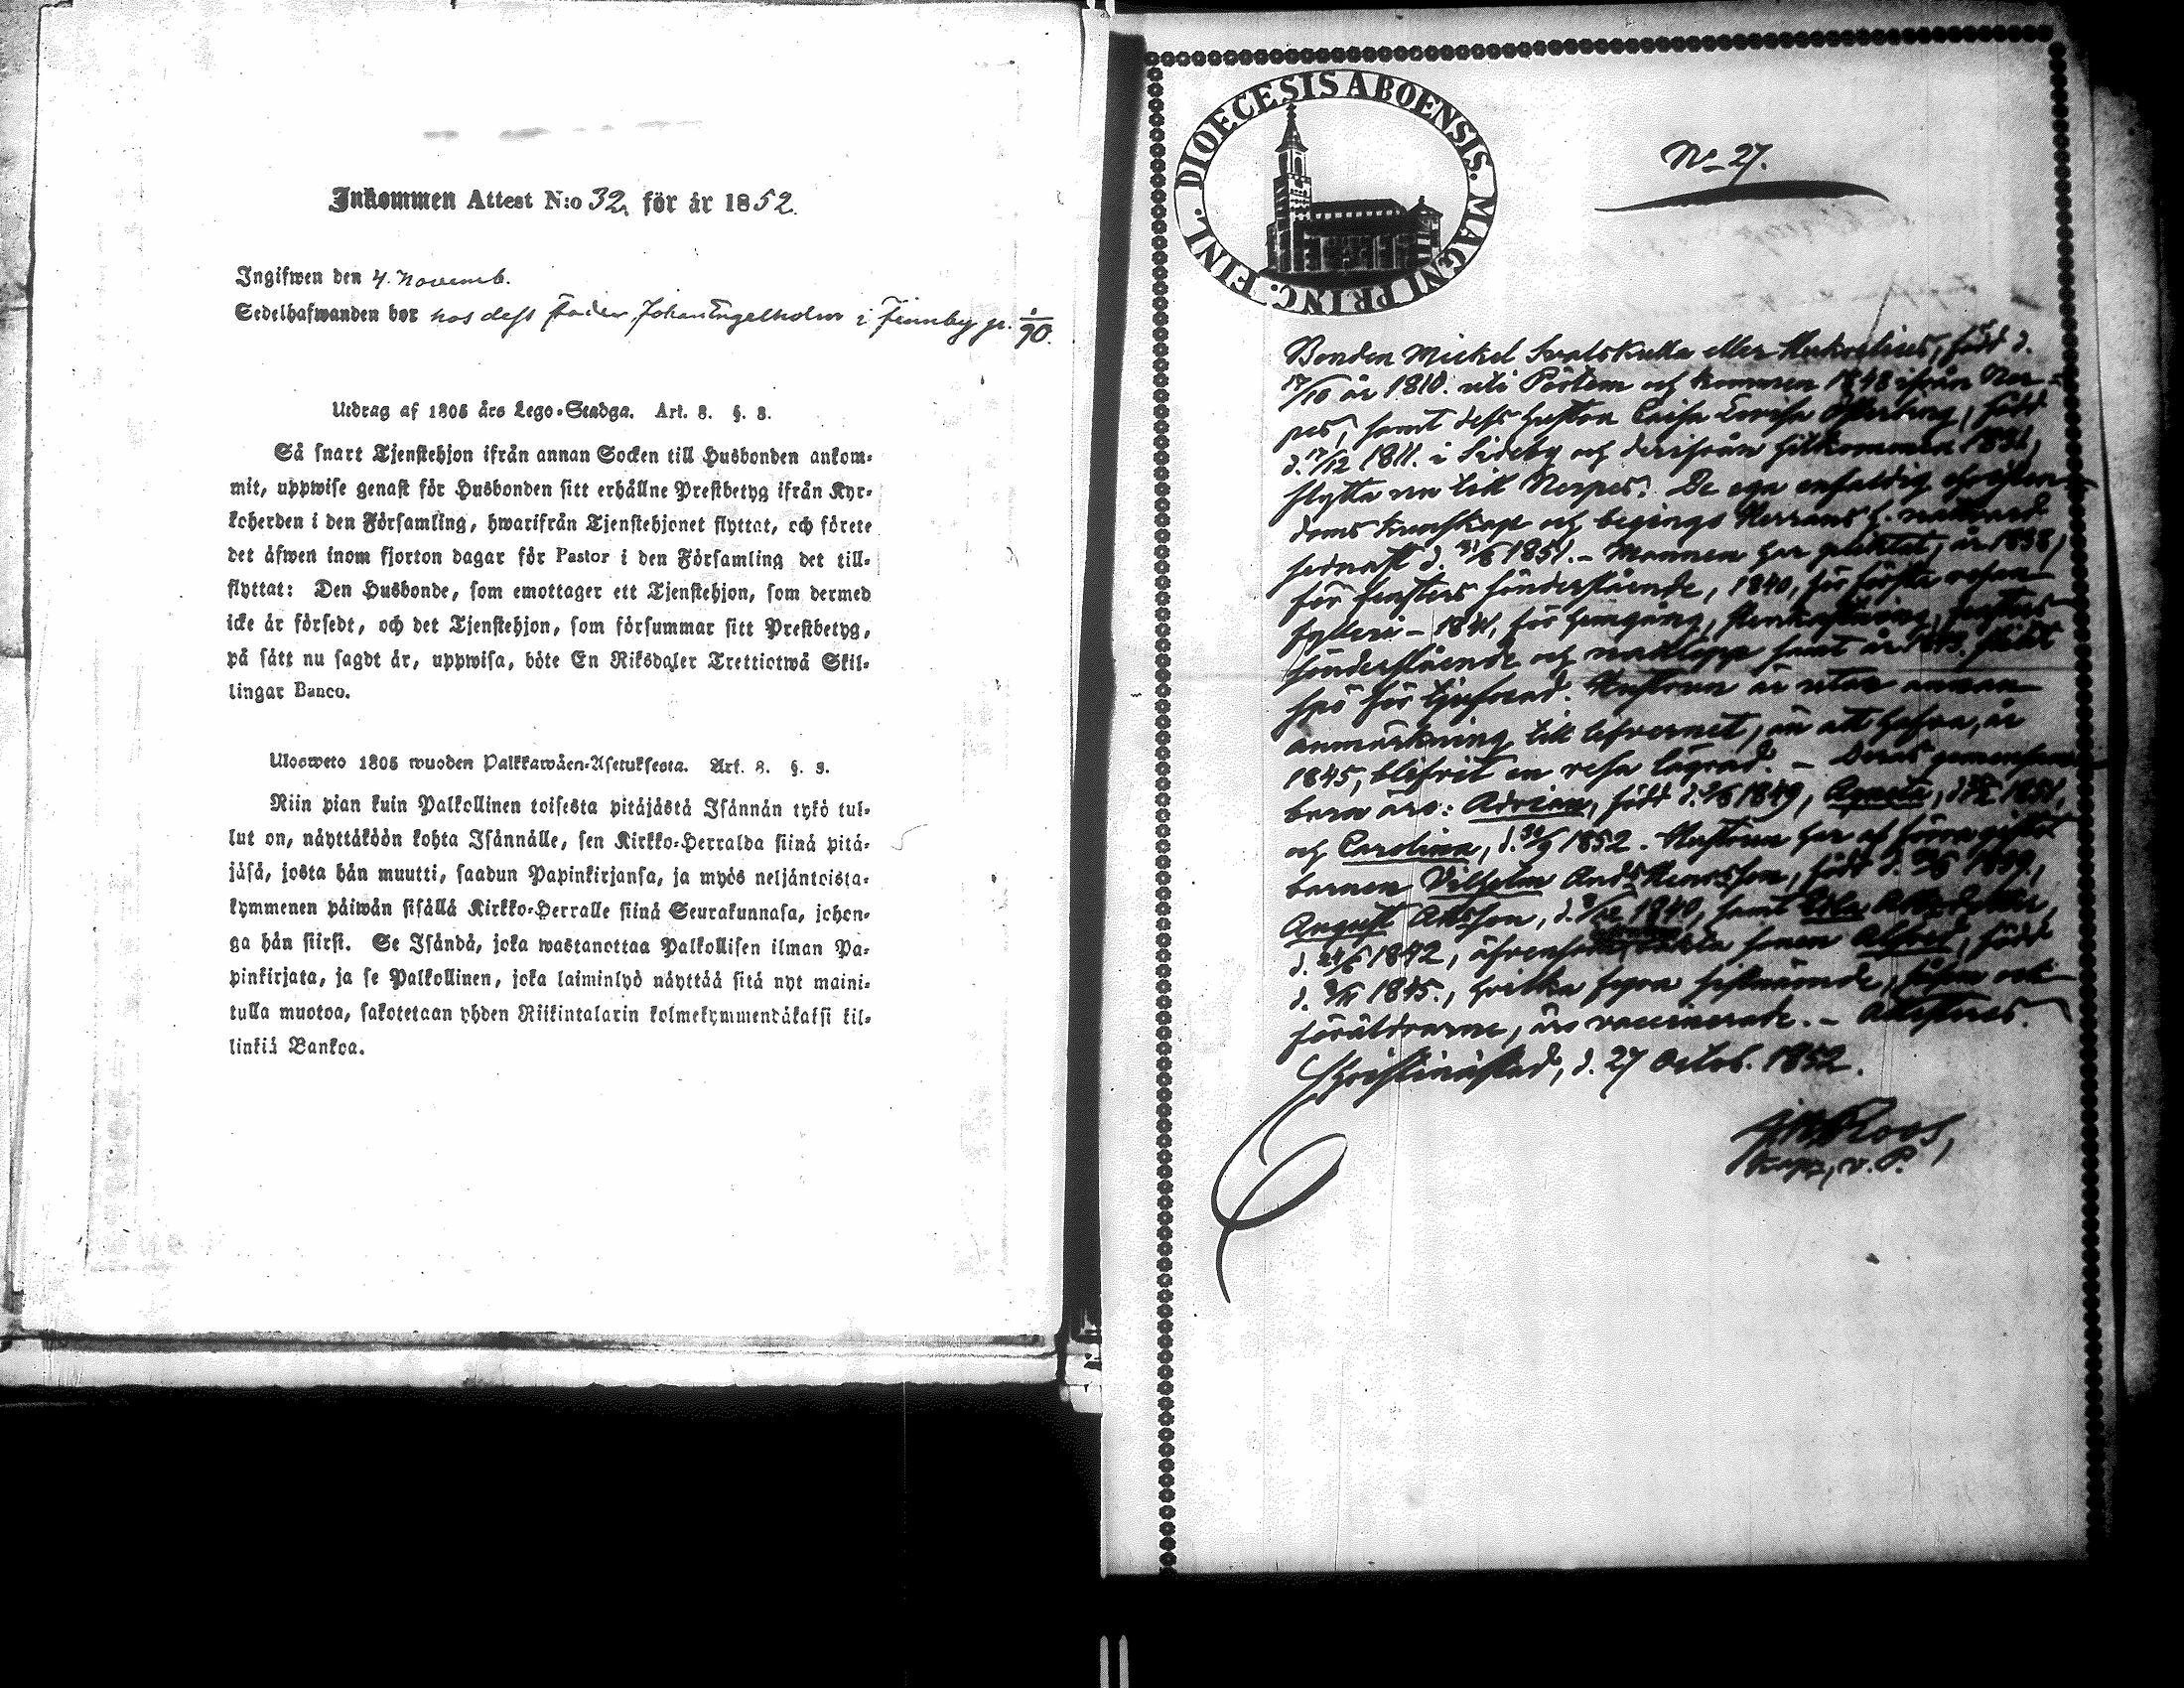 Inkommen Attest N:o 32. för år 1852.
Ingifwen den 4. Novemb.
Sedelhafwanden bor hos dess fader Johan Engelholm i Finnby
Utdrag af 1805 års Lego-Stadga. Art. 8. §. 3.
Så snart Tjenstehjon ifrån annan Socken till Husbonden ankom-
mit, uppwise genast för Husbonden sitt erhållne Prestbetyg ifrån Kyr-
koherden i den Församling, hwarifrån Tjenstehjonet flyttat, och förete
det äfwen inom fjorton dagar för Pastor i den Församling det till-
flyttat: Den Husbonde, som emottager ett Tjenstehjon, som dermed
icke är försedt, och det Tjenstehjon, som försummar sitt Prestbetyg,
på sätt nu sagdt är, uppwisa, böte En Riksdaler Trettiotwå Skil-
lingar Banco.
Ulosweto 1805 wuoden Palkkawäen-Asetuksesta. Art. 8. §. 3.
Niin pian kuin Palkollinen toisesta pitäjästä Isännän tykö tul-
lut on, näyttäköön kohta Isännälle, sen Kirkko-Herralda siinä pitä-
jäsä, josta hän muutti, saadun Papinkirjansa, ja myös neljäntoista-
kymmenen päiwän sisällä Kirkko-Herralle siinä Seurakunnasa, johon-
ga hän siirsi. Se Isändä, joka wastanottaa Palkollisen ilman Pa-
pinkirjata, ja se Palkollinen, joka laiminlyö näyttää sitä nyt maini-
tulla muotoa, sakotetaan yhden Riikintalarin kolmekymmendäkaksi kil-
linkiä Bankoa.
DIOECESIS ABOENSIS. MAGNI PRINC. FINL.
No 27.
Bonden Mickel Svalskulla eller född d.
17/10 år 1810. uti Pörtom och kommen 1848 ifrån Ner-
pes, samt dess hustru Caisa Lovisa född
d. 17/12 1811. i Sideby och derifrån hitkommen 1831,
flytta nu till Nerpes. De ega enfaldig christen-
doms kunskap och begingo Herrans h. nattvard
sednast d. 1851. – Mannen har pliktat, år 1838,
för fensters sönderslående, 1840, för första resan
fylleri – 1841, för hemgång, stenkastning, fensters
sönderslående och samt år 1843. slitit
spö för tjufnad. Hustrun är utan annan
anmärkning till lefvernet, än att hafva, år
1845, blifvit en resa lägrad. – Deras gemensamma
barn äro: Adrian, född d. 1849, Agneta, d. 1851,
och Carolina, d. 1852. Hustrun har af förra giftet
barnen Vilhelm född d. 1837,
August d. 1840, samt
d. 24/6 1842, äfvensom oäkta sonen Alfred, född
d. 1845., hvilka fyra sistnämde, såsom och
föräldrarne, äro vaccinerade. – Attesteras.
Christinæstad, d. 27 Octob. 1852.
Roos,
Kapp, v. P.